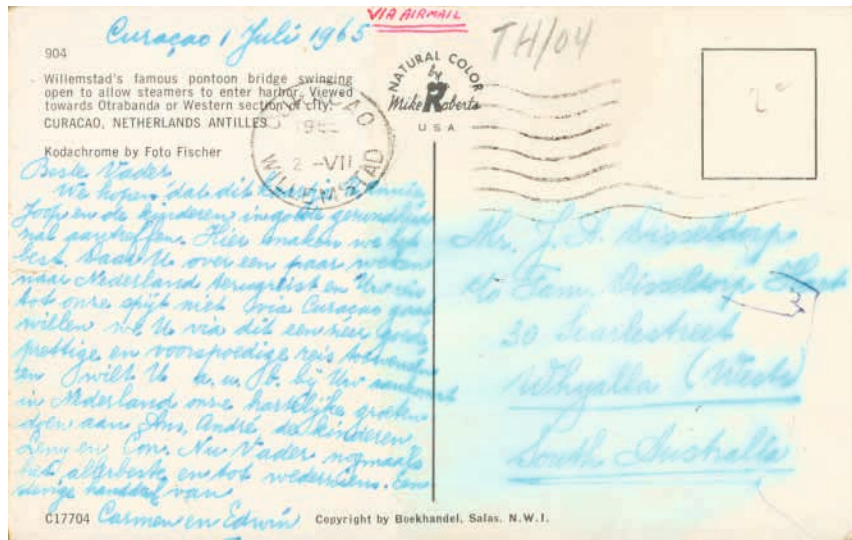 VIA AIRMAIL
Curaçao 1 Juli 1965
TH/04
904
Willemstad's famous pontoon bridge swinging
open to allow steamers to enter harbor. Viewed
towards Otrabanda or Western section of city.
CURACAO, NETHERLANDS ANTILLES
Kodachrome by Foto Fischer
NATURAL COLOR
by
Mike Roberts
USA
2-VII
WILLEMSTAD
Beste Vader
We hopen dat dit
Joop en de kinderen in goede gezondheid
mal aantreffen. Hier maken we het
best. Daar U over een paar weken
naar Nederland terugreist en Uw reis
tot onze spijt niet via Curaçao gaat
willen we U via dit een zeer goede
prettige en voorspoedige reis toewensen
en wilt U a.u.b. bij Uw aankomst
in Nederland onze hartelijke groeten
doen aan Ans, André, de kinderen
Leny en Con. Nu Vader nogmaals
het allerbeste en tot wederziens. Een
stevige handdruk van
Carmen en Edwin
Mr. J. A. Disseldorp
c/o Fam. Disseldorp
30 Searlestreet
Whyalla (West)
South Australia
C17704
Copyright by Boekhandel, Salas. N.W.I.